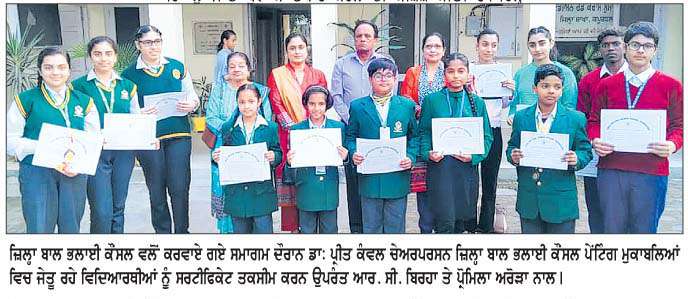 ਜ਼ਿਲ੍ਹਾ ਬਾਲ ਭਲਾਈ ਕੌਂਸਲ ਵਲੋਂ ਕਰਵਾਏ ਗਏ ਸਮਾਗਮ ਦੌਰਾਨ ਡਾ: ਪ੍ਰੀਤ ਕੰਵਲ ਚੇਅਰਪਰਸਨ ਜ਼ਿਲ੍ਹਾ ਬਾਲ ਭਲਾਈ ਕੌਂਸਲ ਪੇਂਟਿੰਗ ਮੁਕਾਬਲਿਆਂ
ਵਿਚ ਜੇਤੂ ਰਹੇ ਵਿਦਿਆਰਥੀਆਂ ਨੂੰ ਸਰਟੀਫਿਕੇਟ ਤਕਸੀਮ ਕਰਨ ਉਪਰੰਤ ਆਰ. ਸੀ. ਬਿਰਹਾ ਤੇ ਪ੍ਰੋਮਿਲਾ ਅਰੋੜਾ ਨਾਲ।